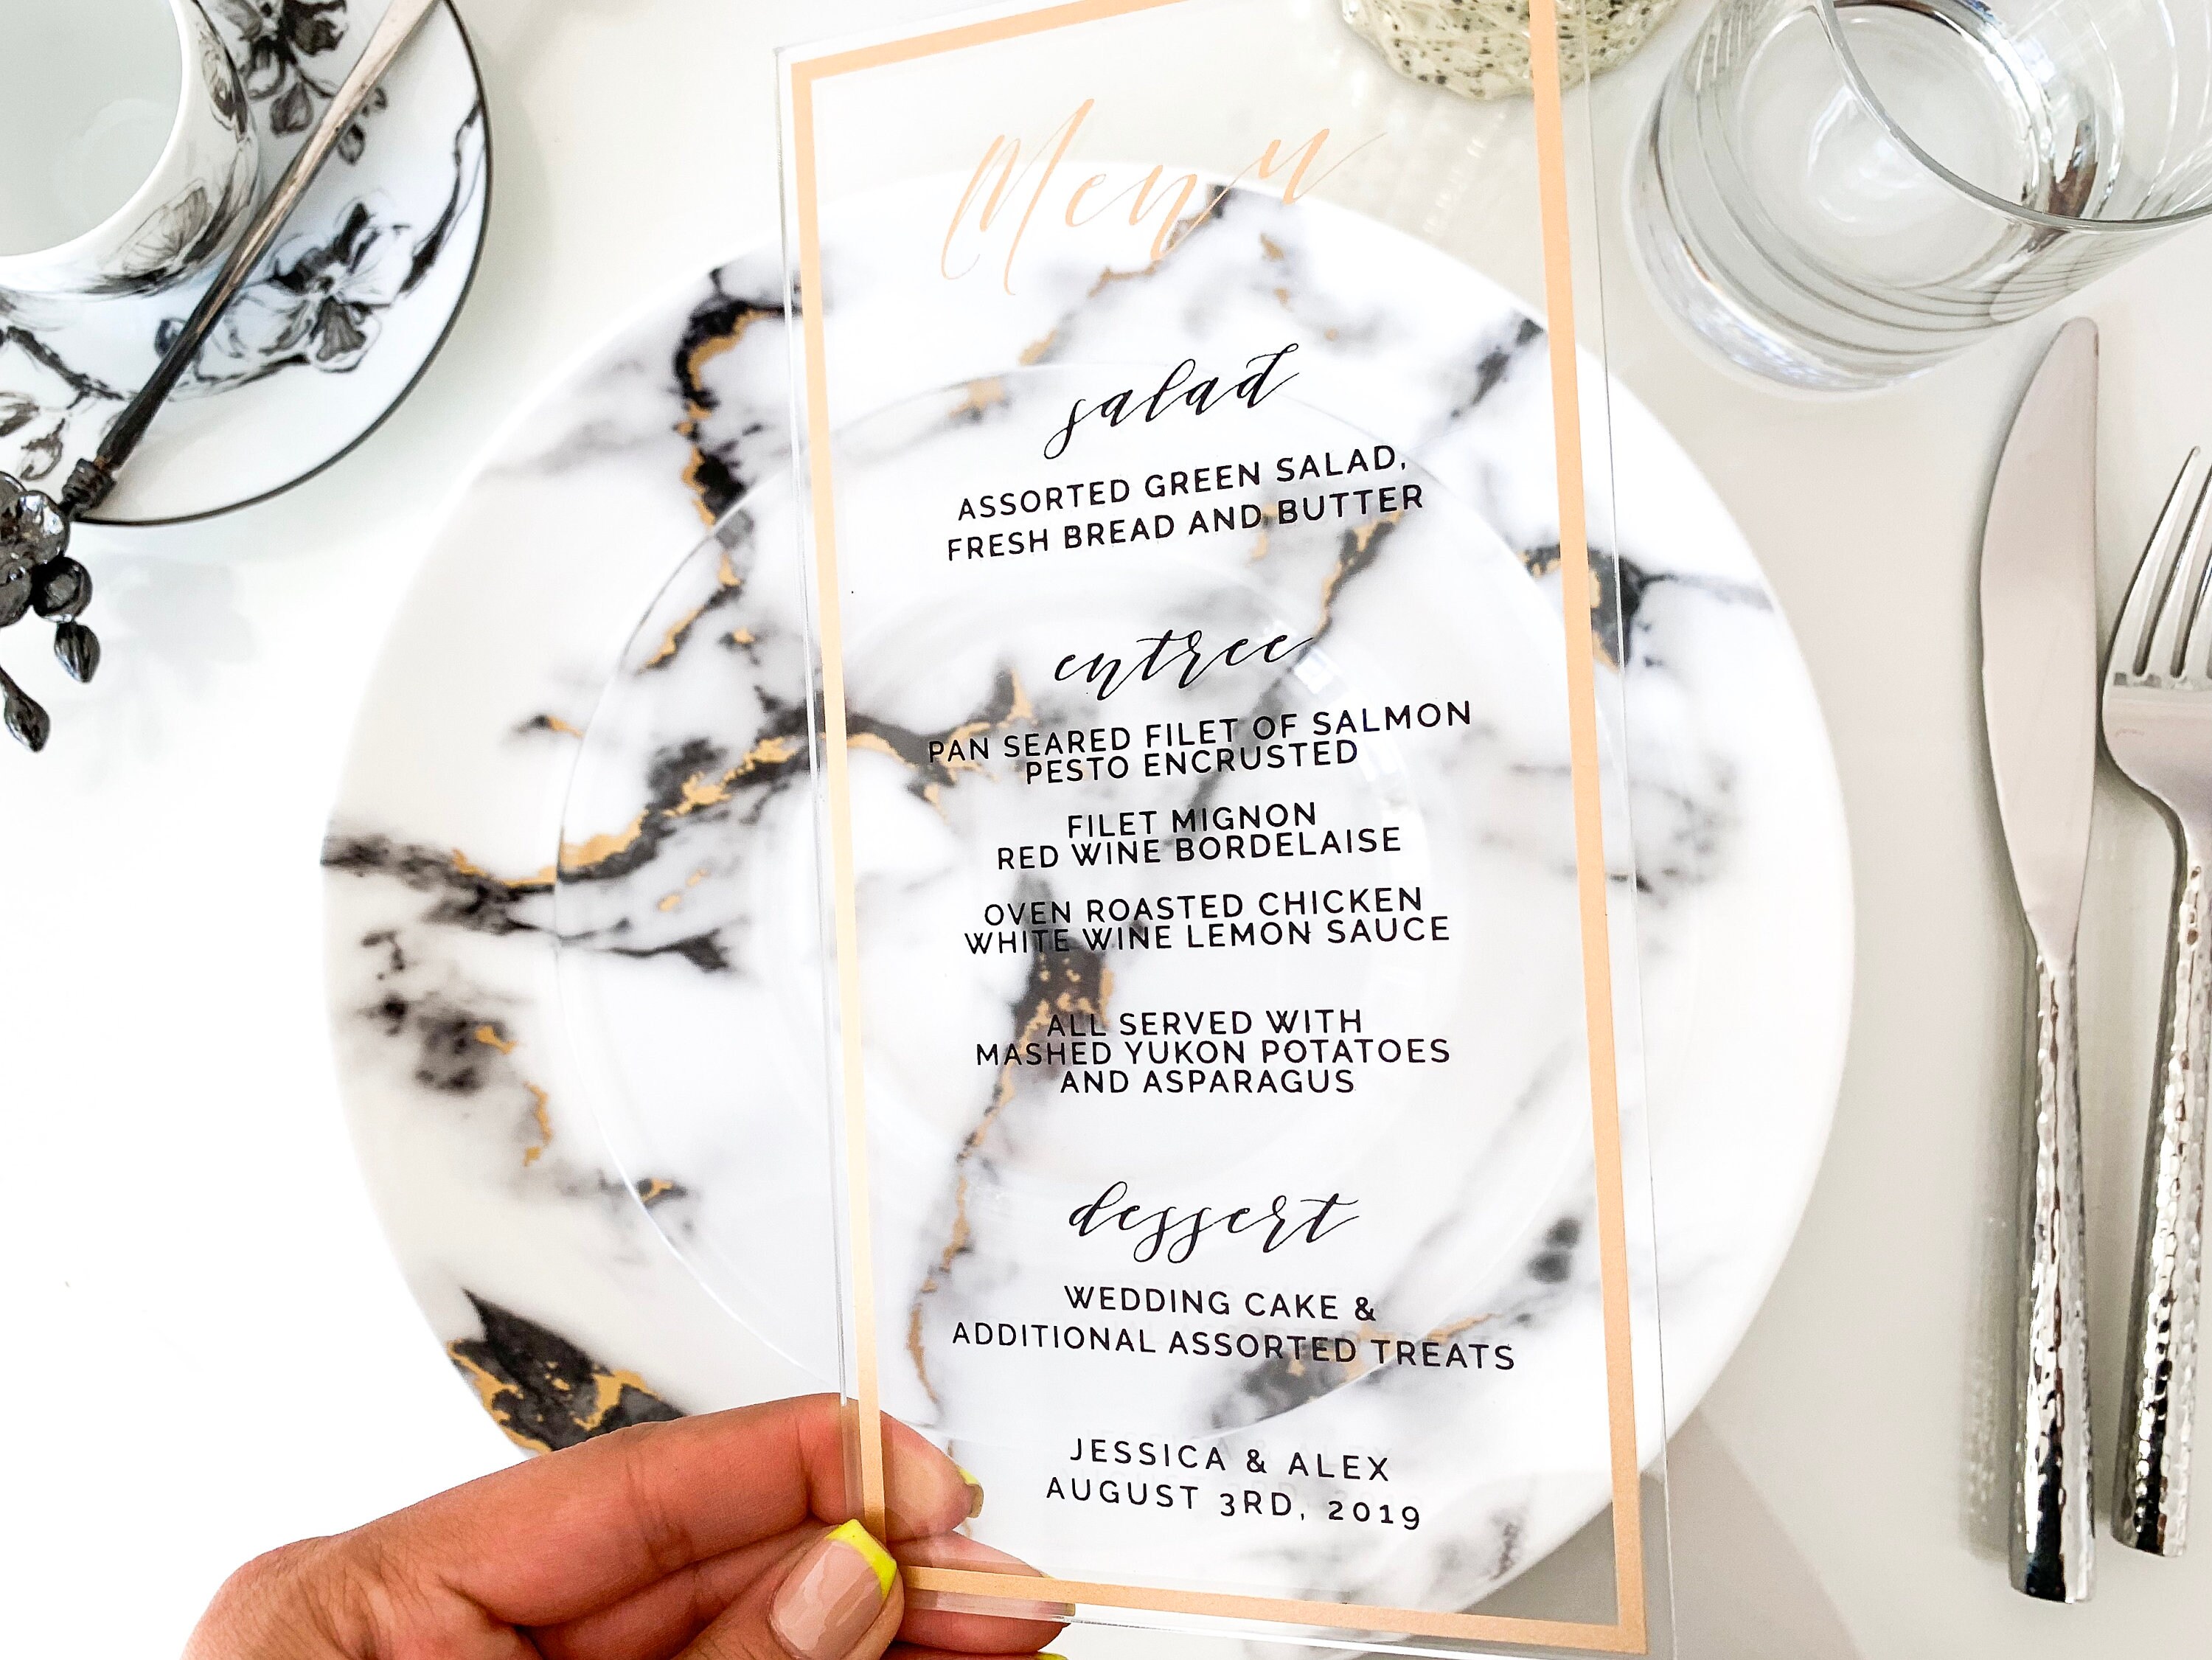 Menu
salad
ASSORTED GREEN SALAD,
FRESH BREAD AND BUTTER
entree
PAN SEARED FILET OF SALMON
PESTO ENCRUSTED
FILET MIGNON
RED WINE BORDELAISE
OVEN ROASTED CHICKEN
WHITE WINE LEMON SAUCE
ALL SERVED WITH
MASHED YUKON POTATOES
AND ASPARAGUS
dessert
WEDDING CAKE &
ADDITIONAL ASSORTED TREATS
JESSICA & ALEX
AUGUST 3RD, 2019